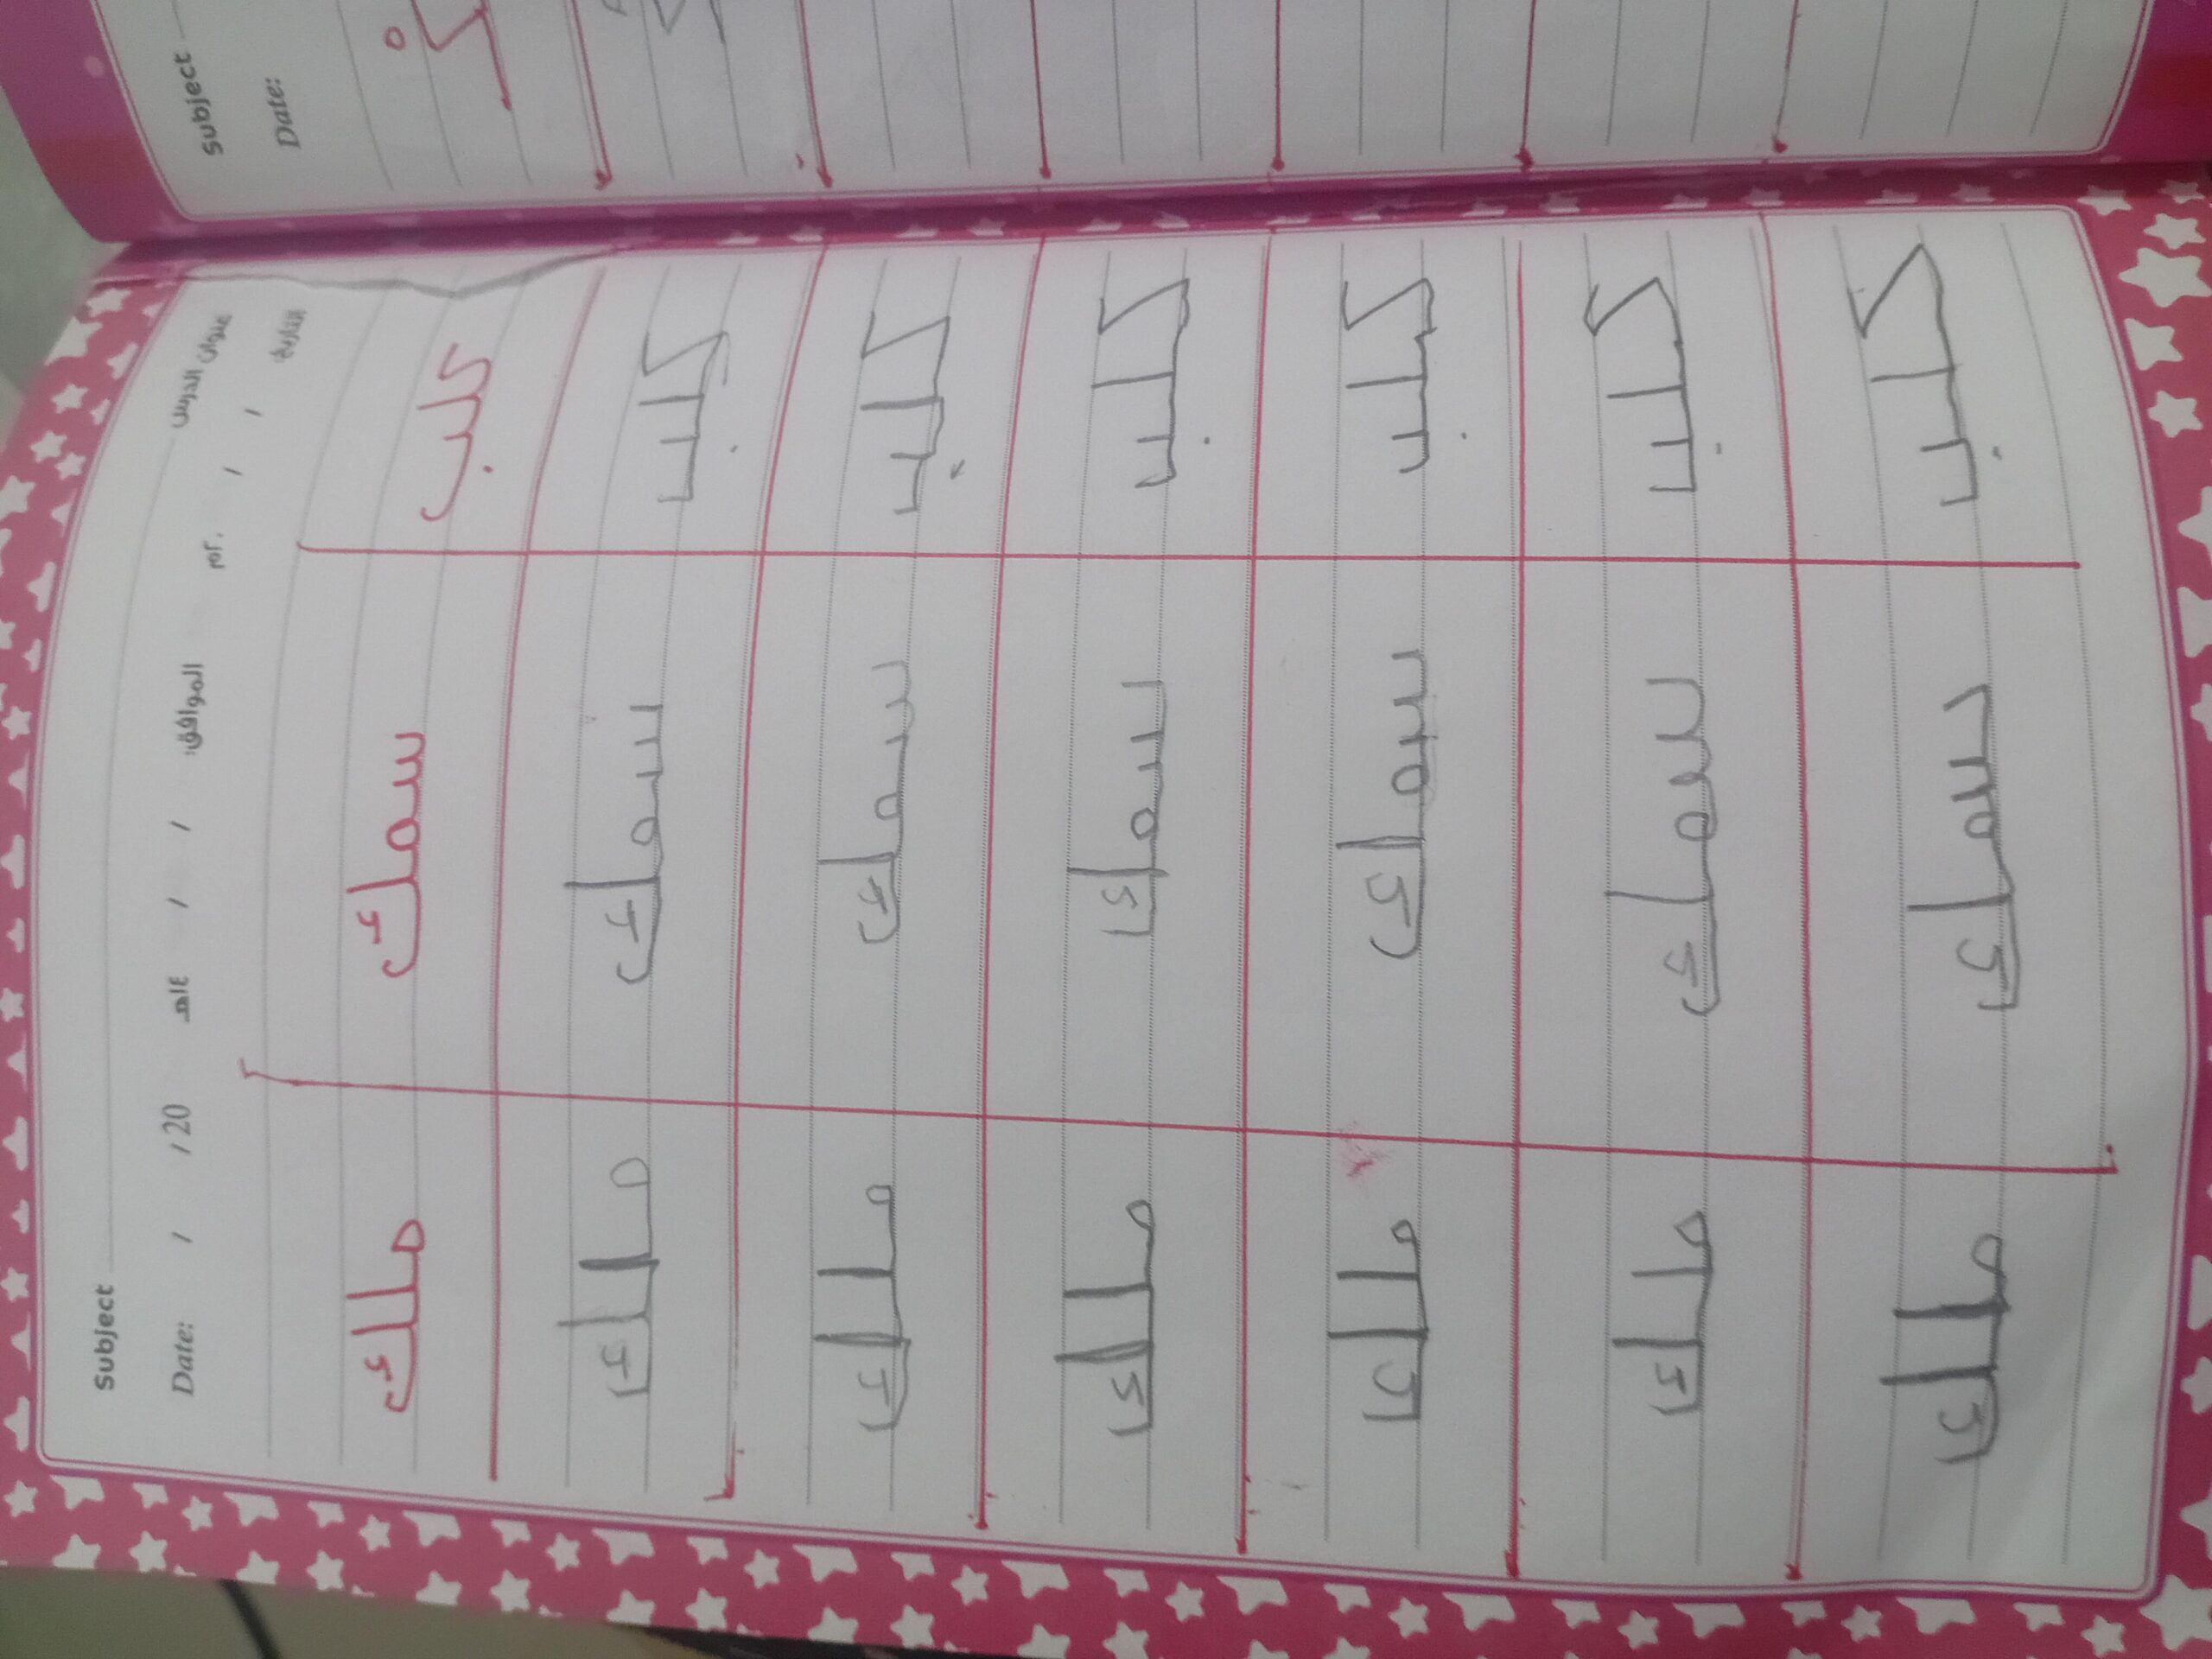 Subject عنوان الدرس
Date: / /20 14هـ / / الموافق: م. / / التاريخ:
كلب سمك ملك
كلب سمك ملك
كلب سمك ملك
كلب سمك ملك
كلب سمك ملك
كلب سمك ملك
كلب سمك ملك
Subject
Date: